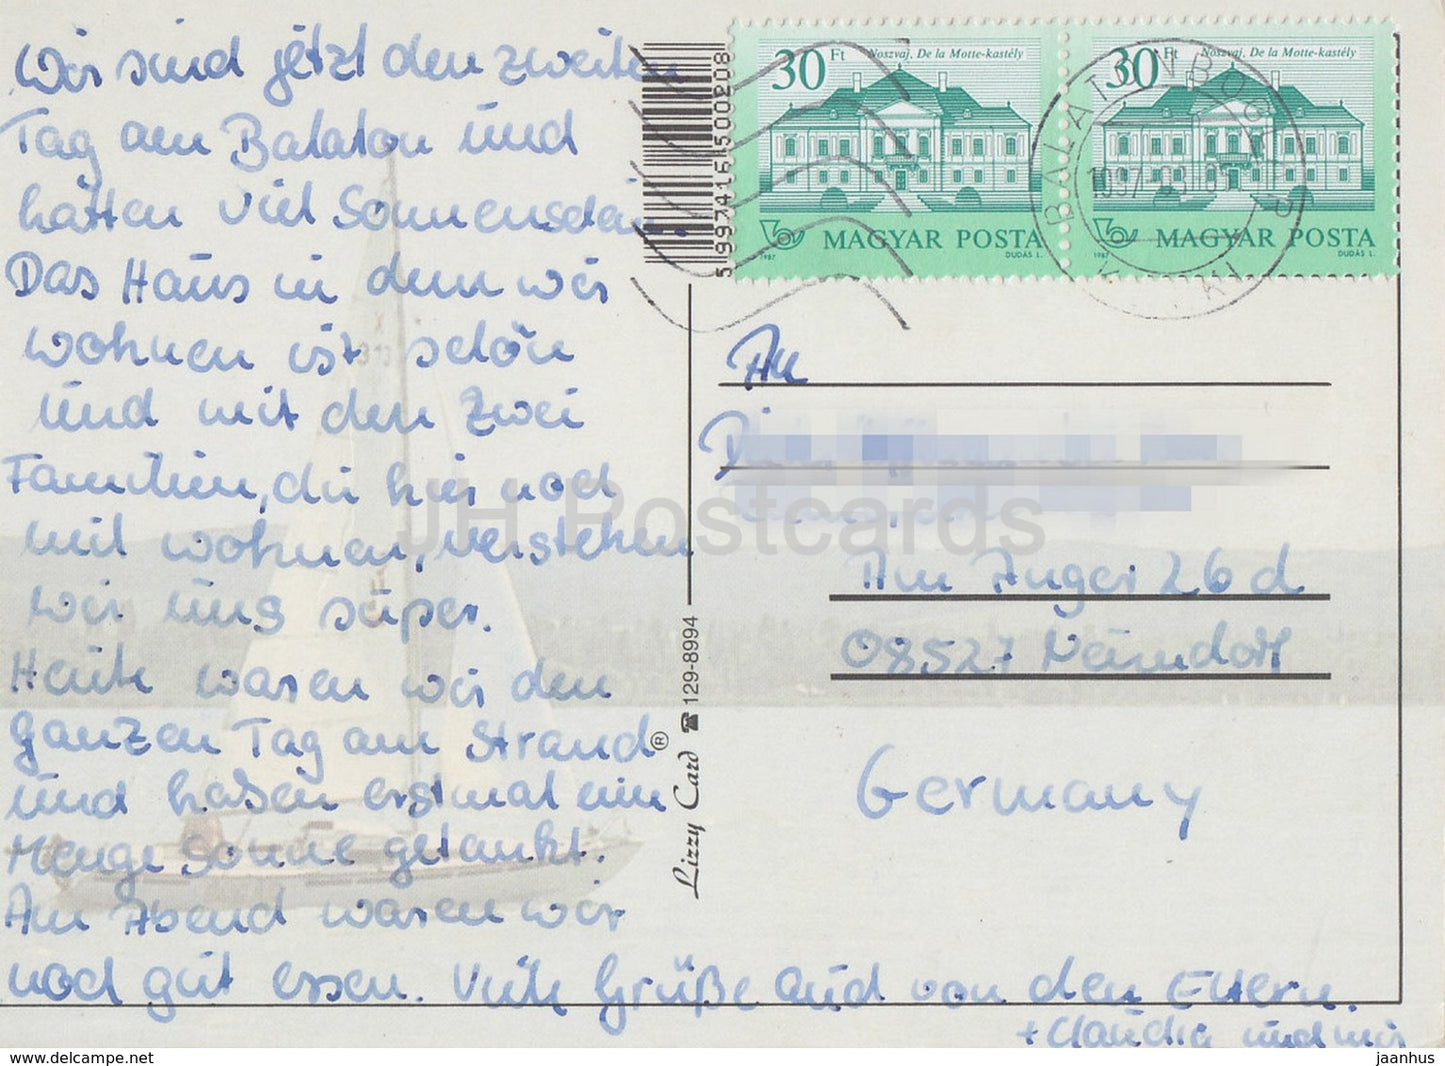 Wir sind jetzt den zweiten
Tag am Balaton und
hatten viel Sonnenschein.
Das Haus in dem wir
wohnen ist schön
und mit den zwei
Familien, die hier noch
mit wohnen, verstehen
wir uns super.
Heute waren wir den
ganzen Tag am Strand
und haben erstmal eine
Menge Sonne getankt.
Am Abend waren wir
noch gut essen. Viele Grüße auch von den Eltern.
+ Claudia und mir
5997416500208
30 Ft Noszvaj, De la Motte-kastély
MAGYAR POSTA
1987 DUDÁS L.
30 Ft Noszvaj, De la Motte-kastély
MAGYAR POSTA
1987 DUDÁS L.
BALATONBOGLÁR
An
Am Anger 26d
08527 Neundorf
Germany
Lizzy Card ® ☎ 129-8994
JH Postcards
www.delcampe.net
jaanhus